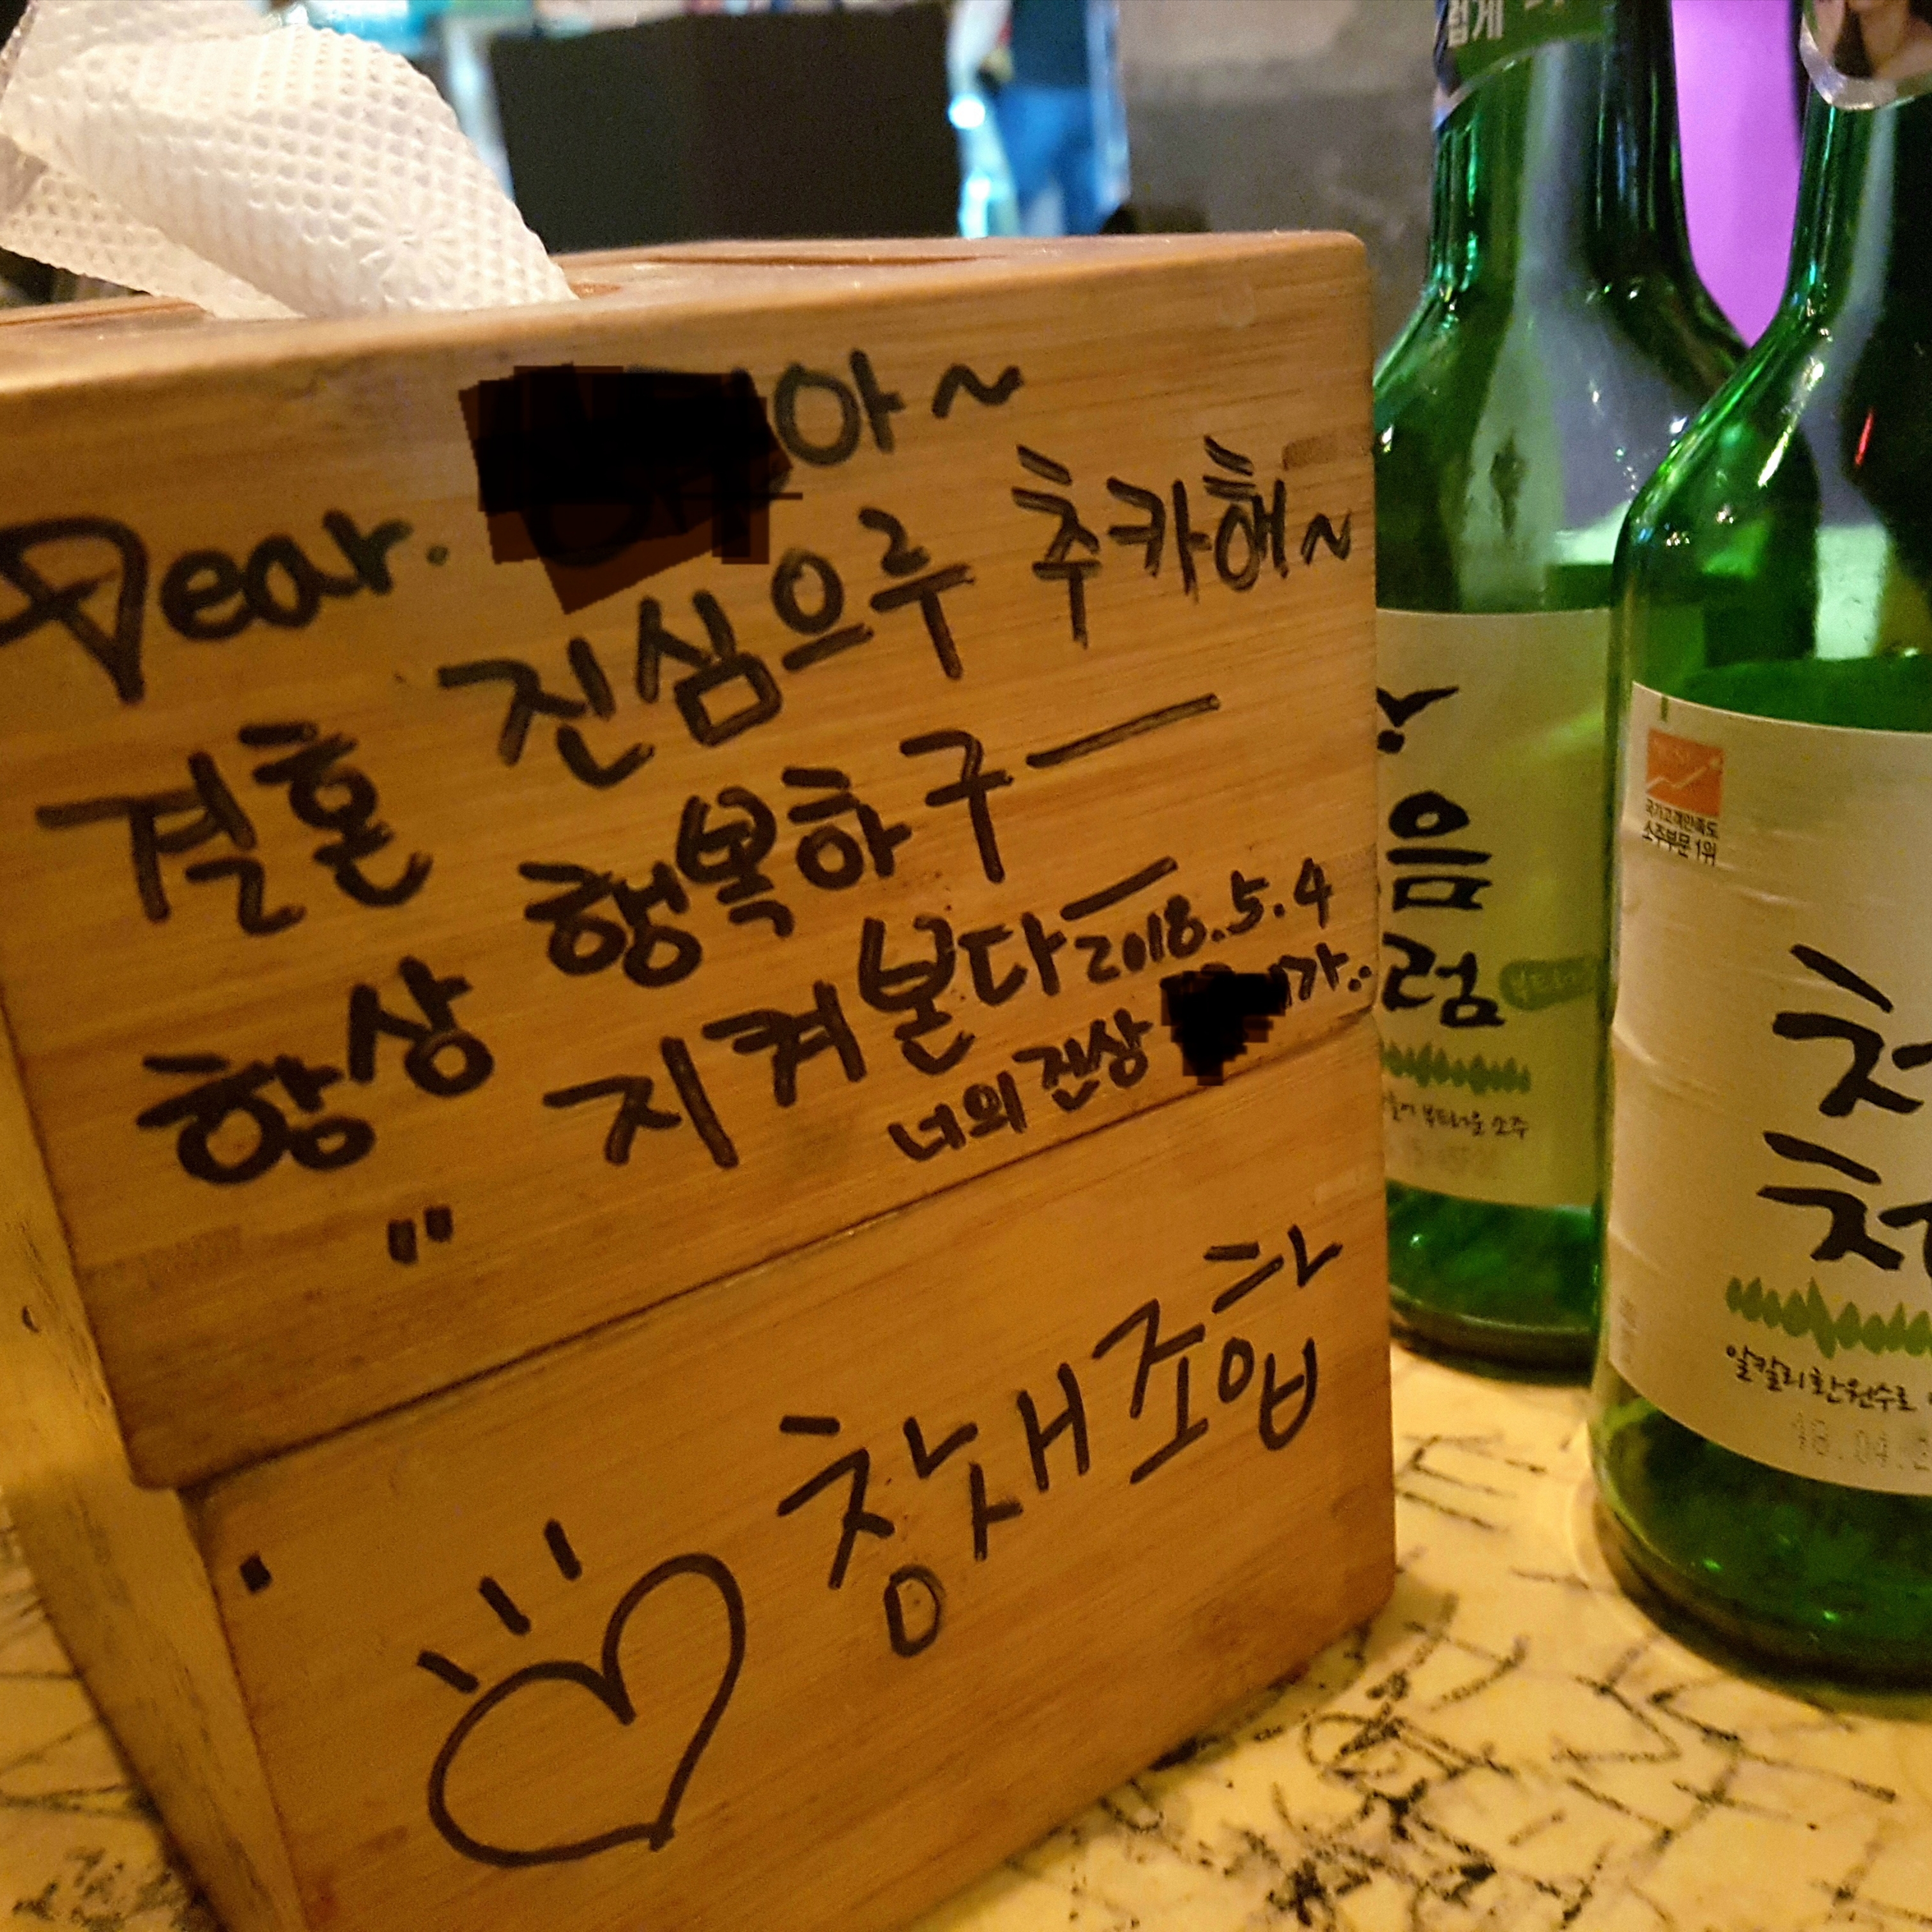 Dear. 아~
결혼 진심으루 추카해~
항상 행복하구―
지켜본다― 2018.5.4
너의 진상 가..
창새조합
럽게
음
럼
부드러운 소주
국가고객만족도
소주부문 1위
처
처
알칼리환원수로
18.04.2